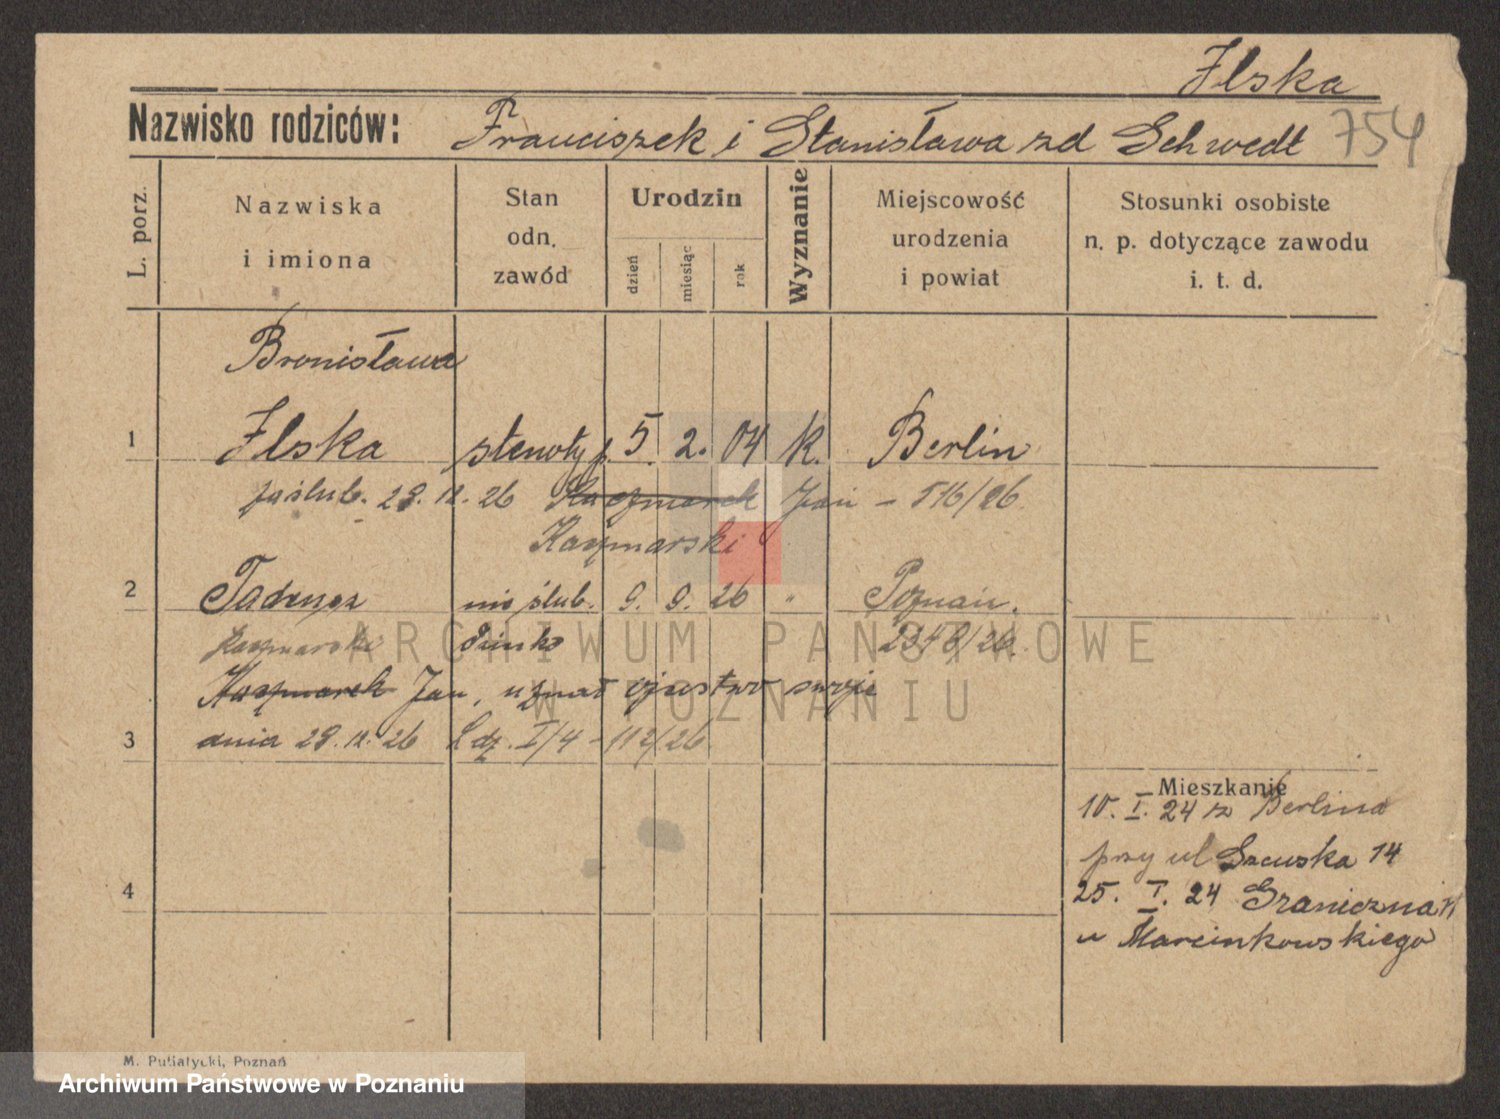 Ilska
Nazwisko rodziców: Franciszek i Stanisława zd Schwedt 754
L. porz.
Nazwiska i imiona
Stan odn. zawód
Urodzin
dzień miesiąc rok
Wyznanie
Miejscowość urodzenia i powiat
Stosunki osobiste n. p. dotyczące zawodu i. t. d.
Bronisława
1 Ilska stenotyp. 5. 2. 04 k. Berlin
zaślub. 28. 12. 26 Kaczmarek Jan – 516/26.
Kaczmarski
2 Tadeusz nieślub. 9. 9. 26 " Poznań.
Kaczmarski 2348/26.
Kaczmarek Jan, uznał ojcostwo swoje
3 dnia 28. 12. 26 L dz. I/4 – 112/26
Mieszkanie
10. I. 24 z Berlina
przy ul 14
4 25. I. 24 Graniczna
u Marcinkowskiego
M. Putiatycki, Poznań
ARCHIWUM PAŃSTWOWE
W POZNANIU
Archiwum Państwowe w Poznaniu